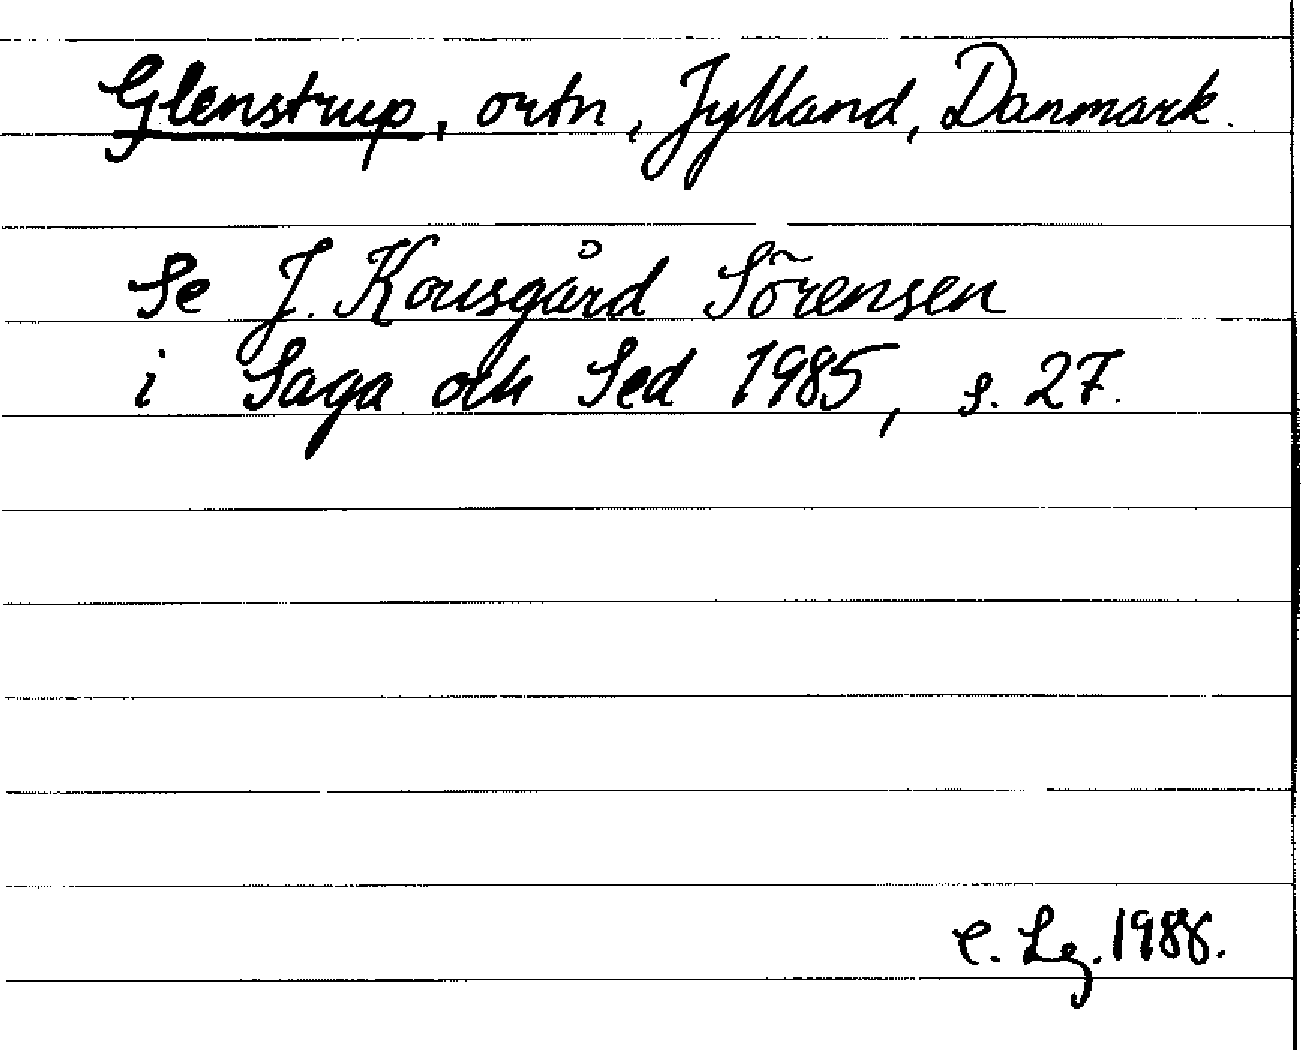 Glenstrup, ortn, Jylland, Danmark.
Se J. Kousgård Sörensen
i Saga och Sed 1985, s. 27.
C. Lg. 1988.